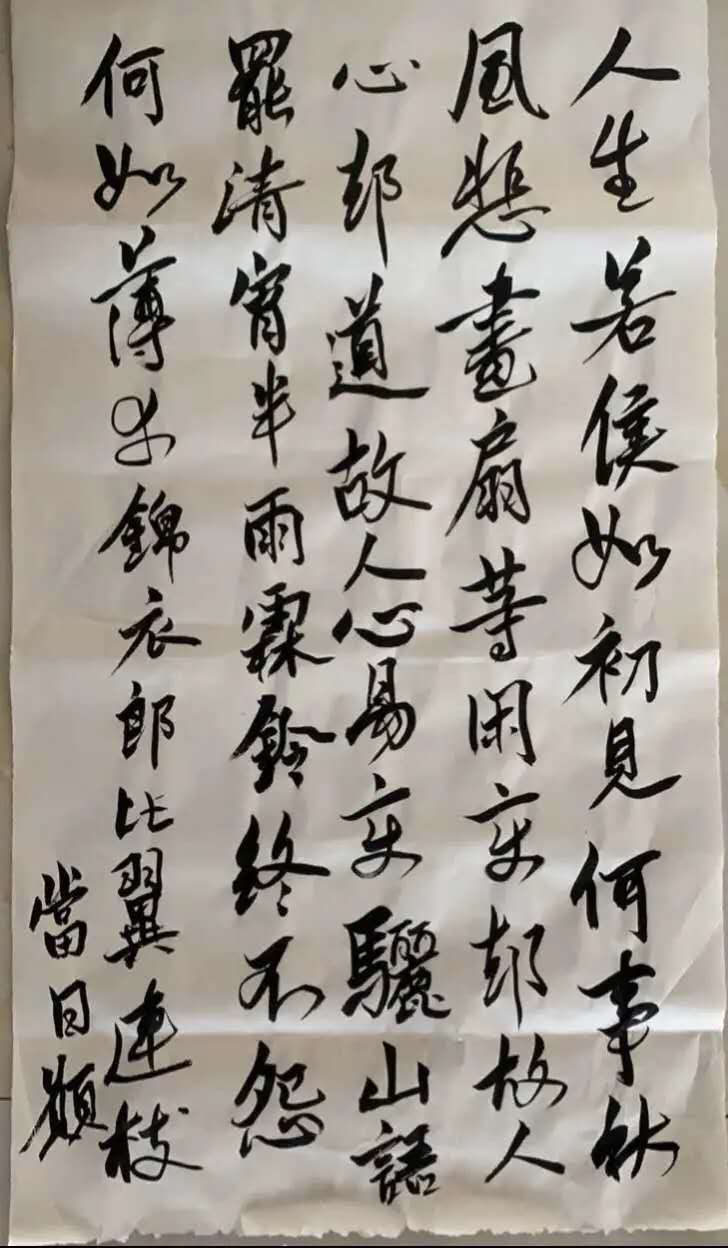 人生若侯如初見何事秋
風悲畫扇等閑变却故人
心却道故人心易变驪山語
罷清宵半雨霖鈴終不怨
何如薄幸錦衣郎比翼連枝
當日願